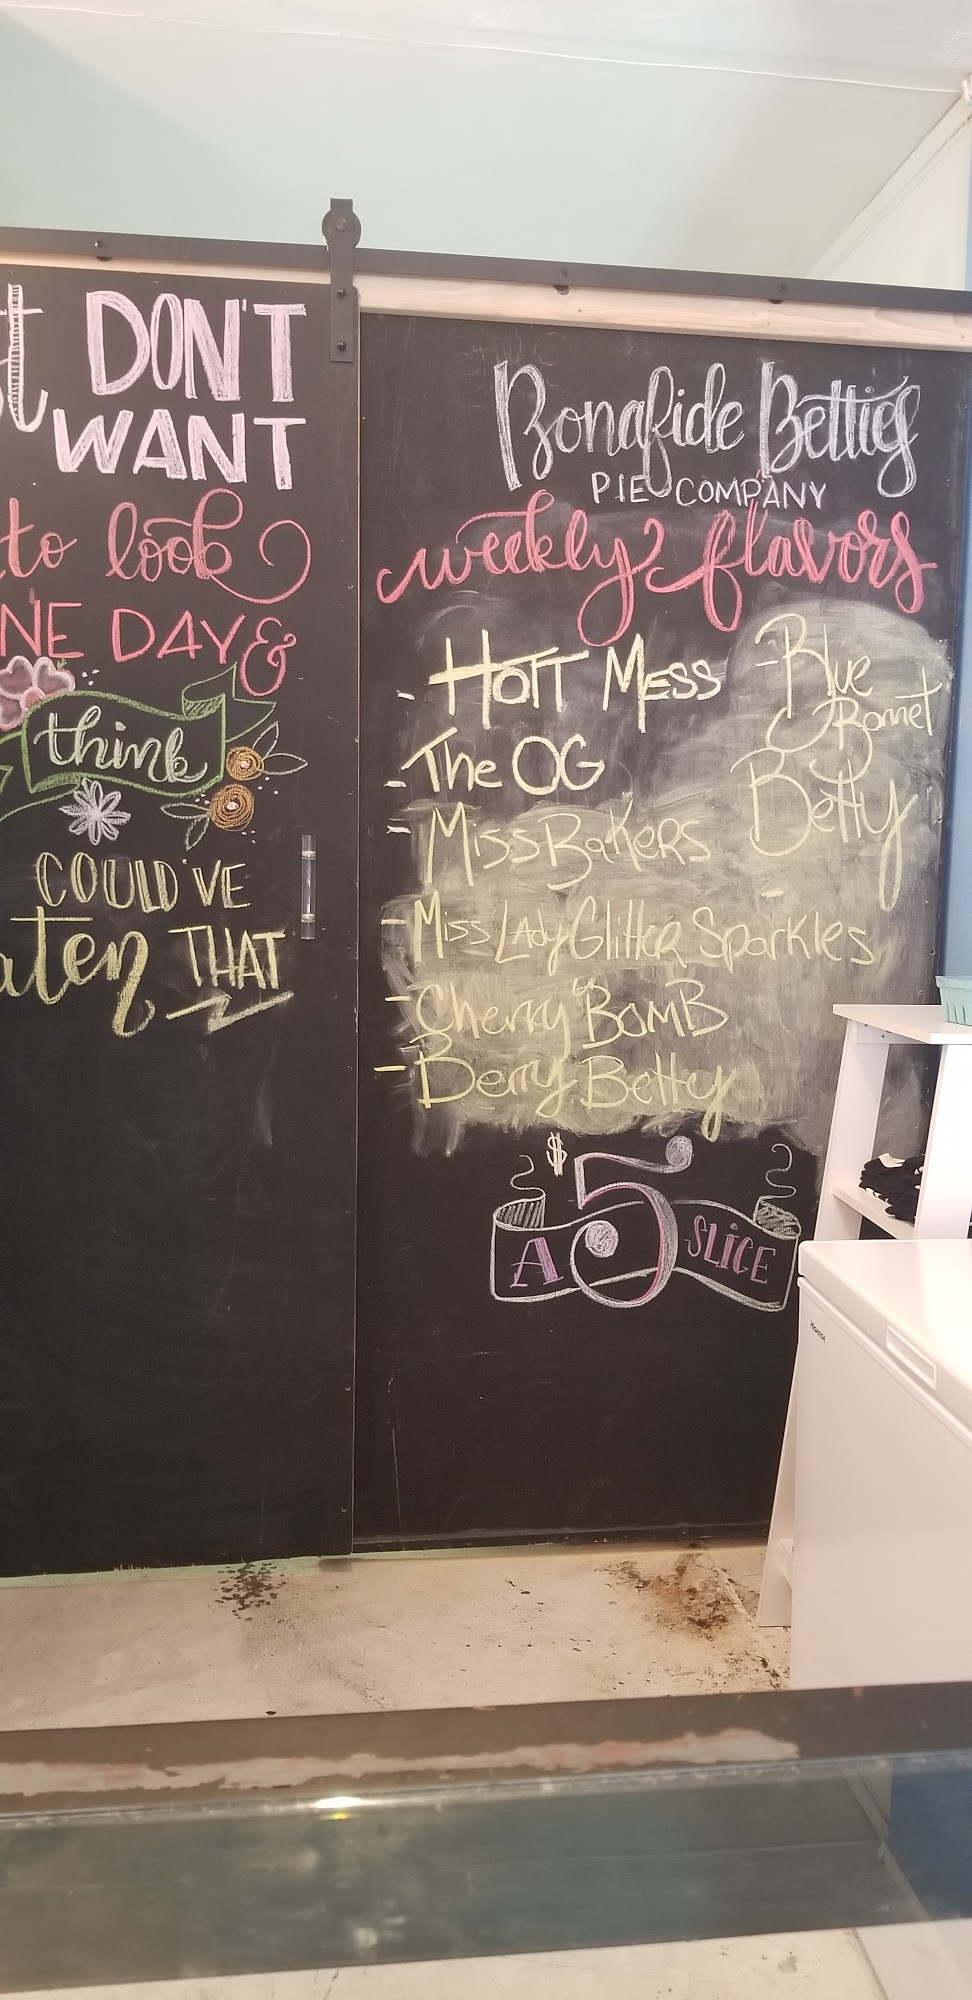 DON'T
WANT
to look
NE DAY &
think
COULD'VE
aten THAT
Bonafide Betties
PIE COMPANY
weekly flavors
- HOTT MESS
- The OG
- Miss BaKERS
- Miss LAdy Glitter Sparkles
- Cherry BOMB
- Berry Betty
- Blue
Bonnet
Betty
$5
A SLICE
Hisense